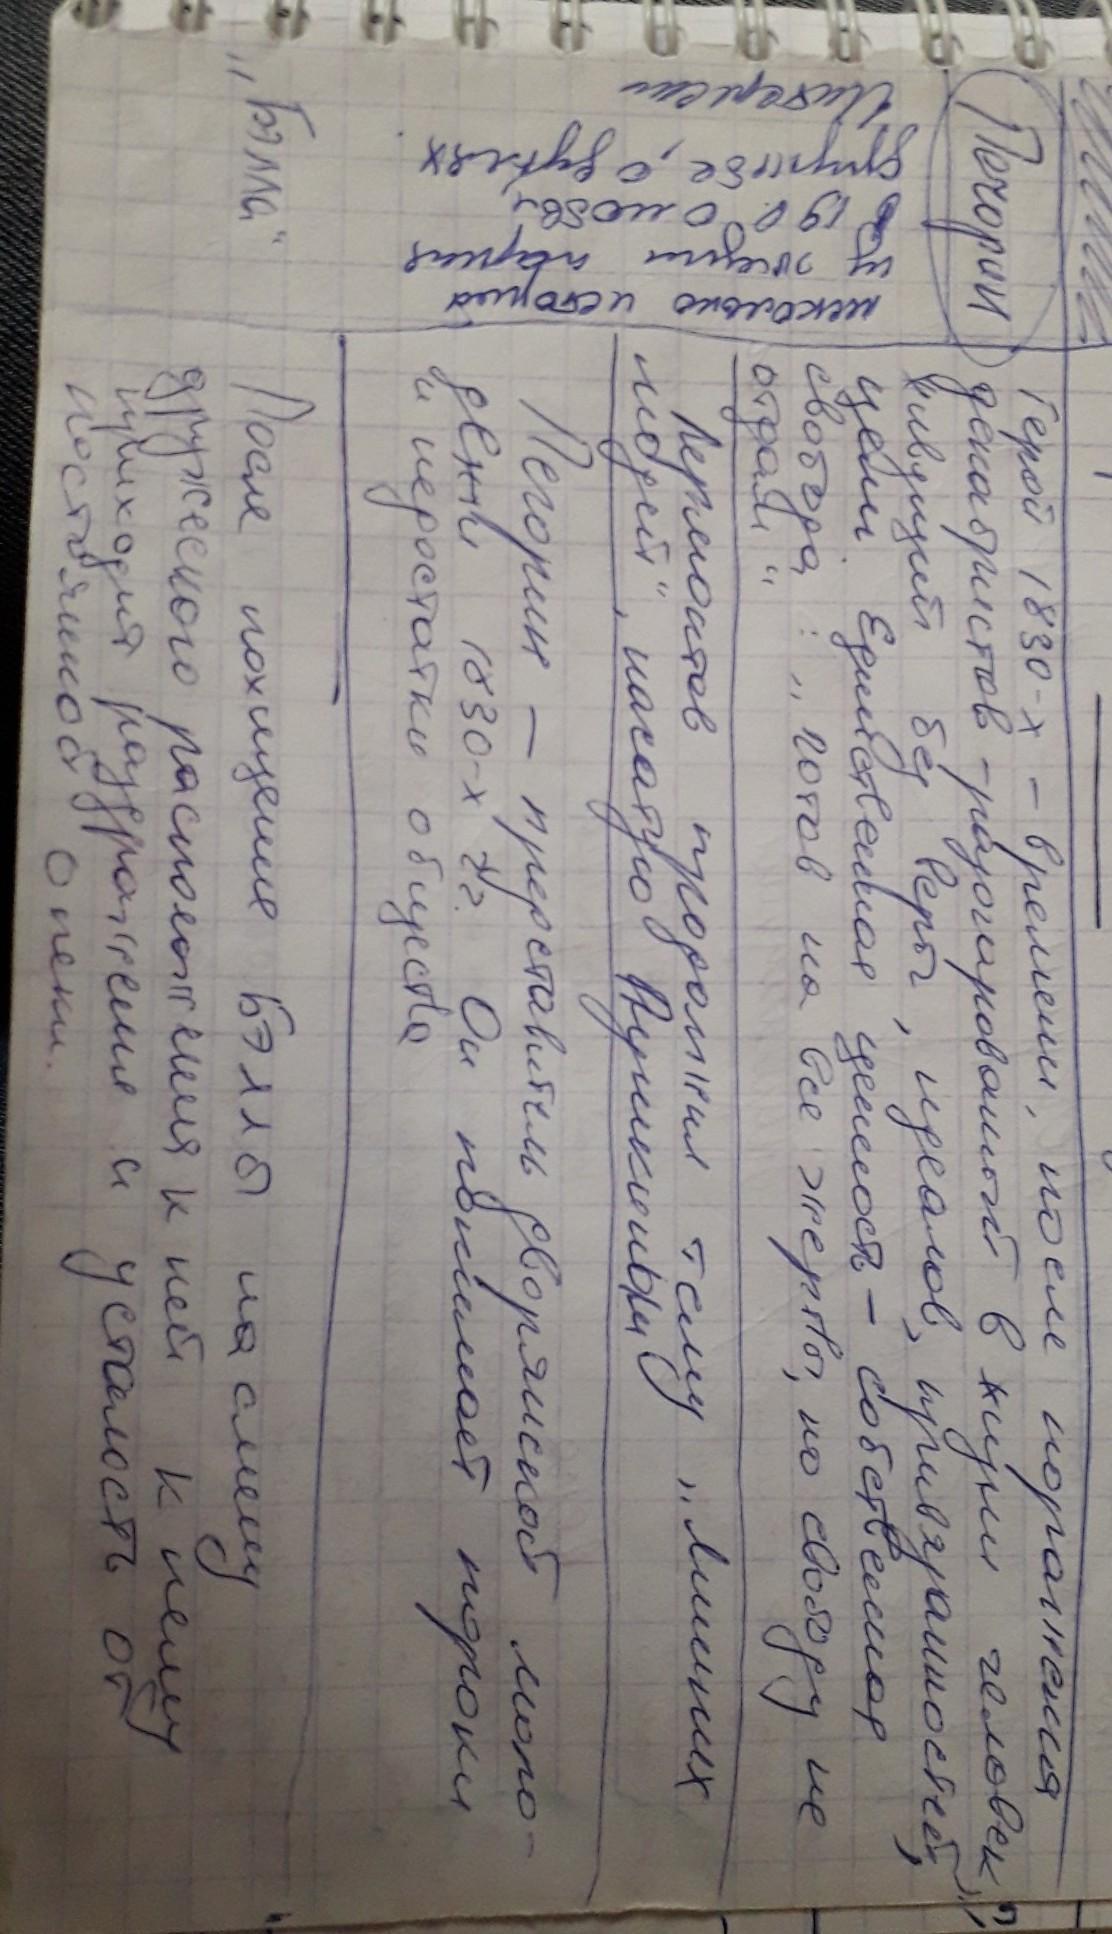 Печорин
Герой 1830-х – времени, после поражения
декабристов – разочарованный в жизни человек,
живущий без веры, идеалов, привязанностей,
цели. Единственная ценность – собственная
свобода: „Готов на все жертвы, но свободу не
отдам"
несколько историй
из жизни парня
в 19в. О любви,
дружбе, о дуэлях
Интересы
Лермонтов продолжил тему „Лишних
людей", начатую Пушкиным
Печорин – представитель дворянской моло-
дежи 1830-х гг. Он понимает пороки
и недостатки общества
„Бэлла"
После похищение Бэллы на смену
дружеского расположения к ней к нему
приходит раздражение и усталость от
постоянной опеки.